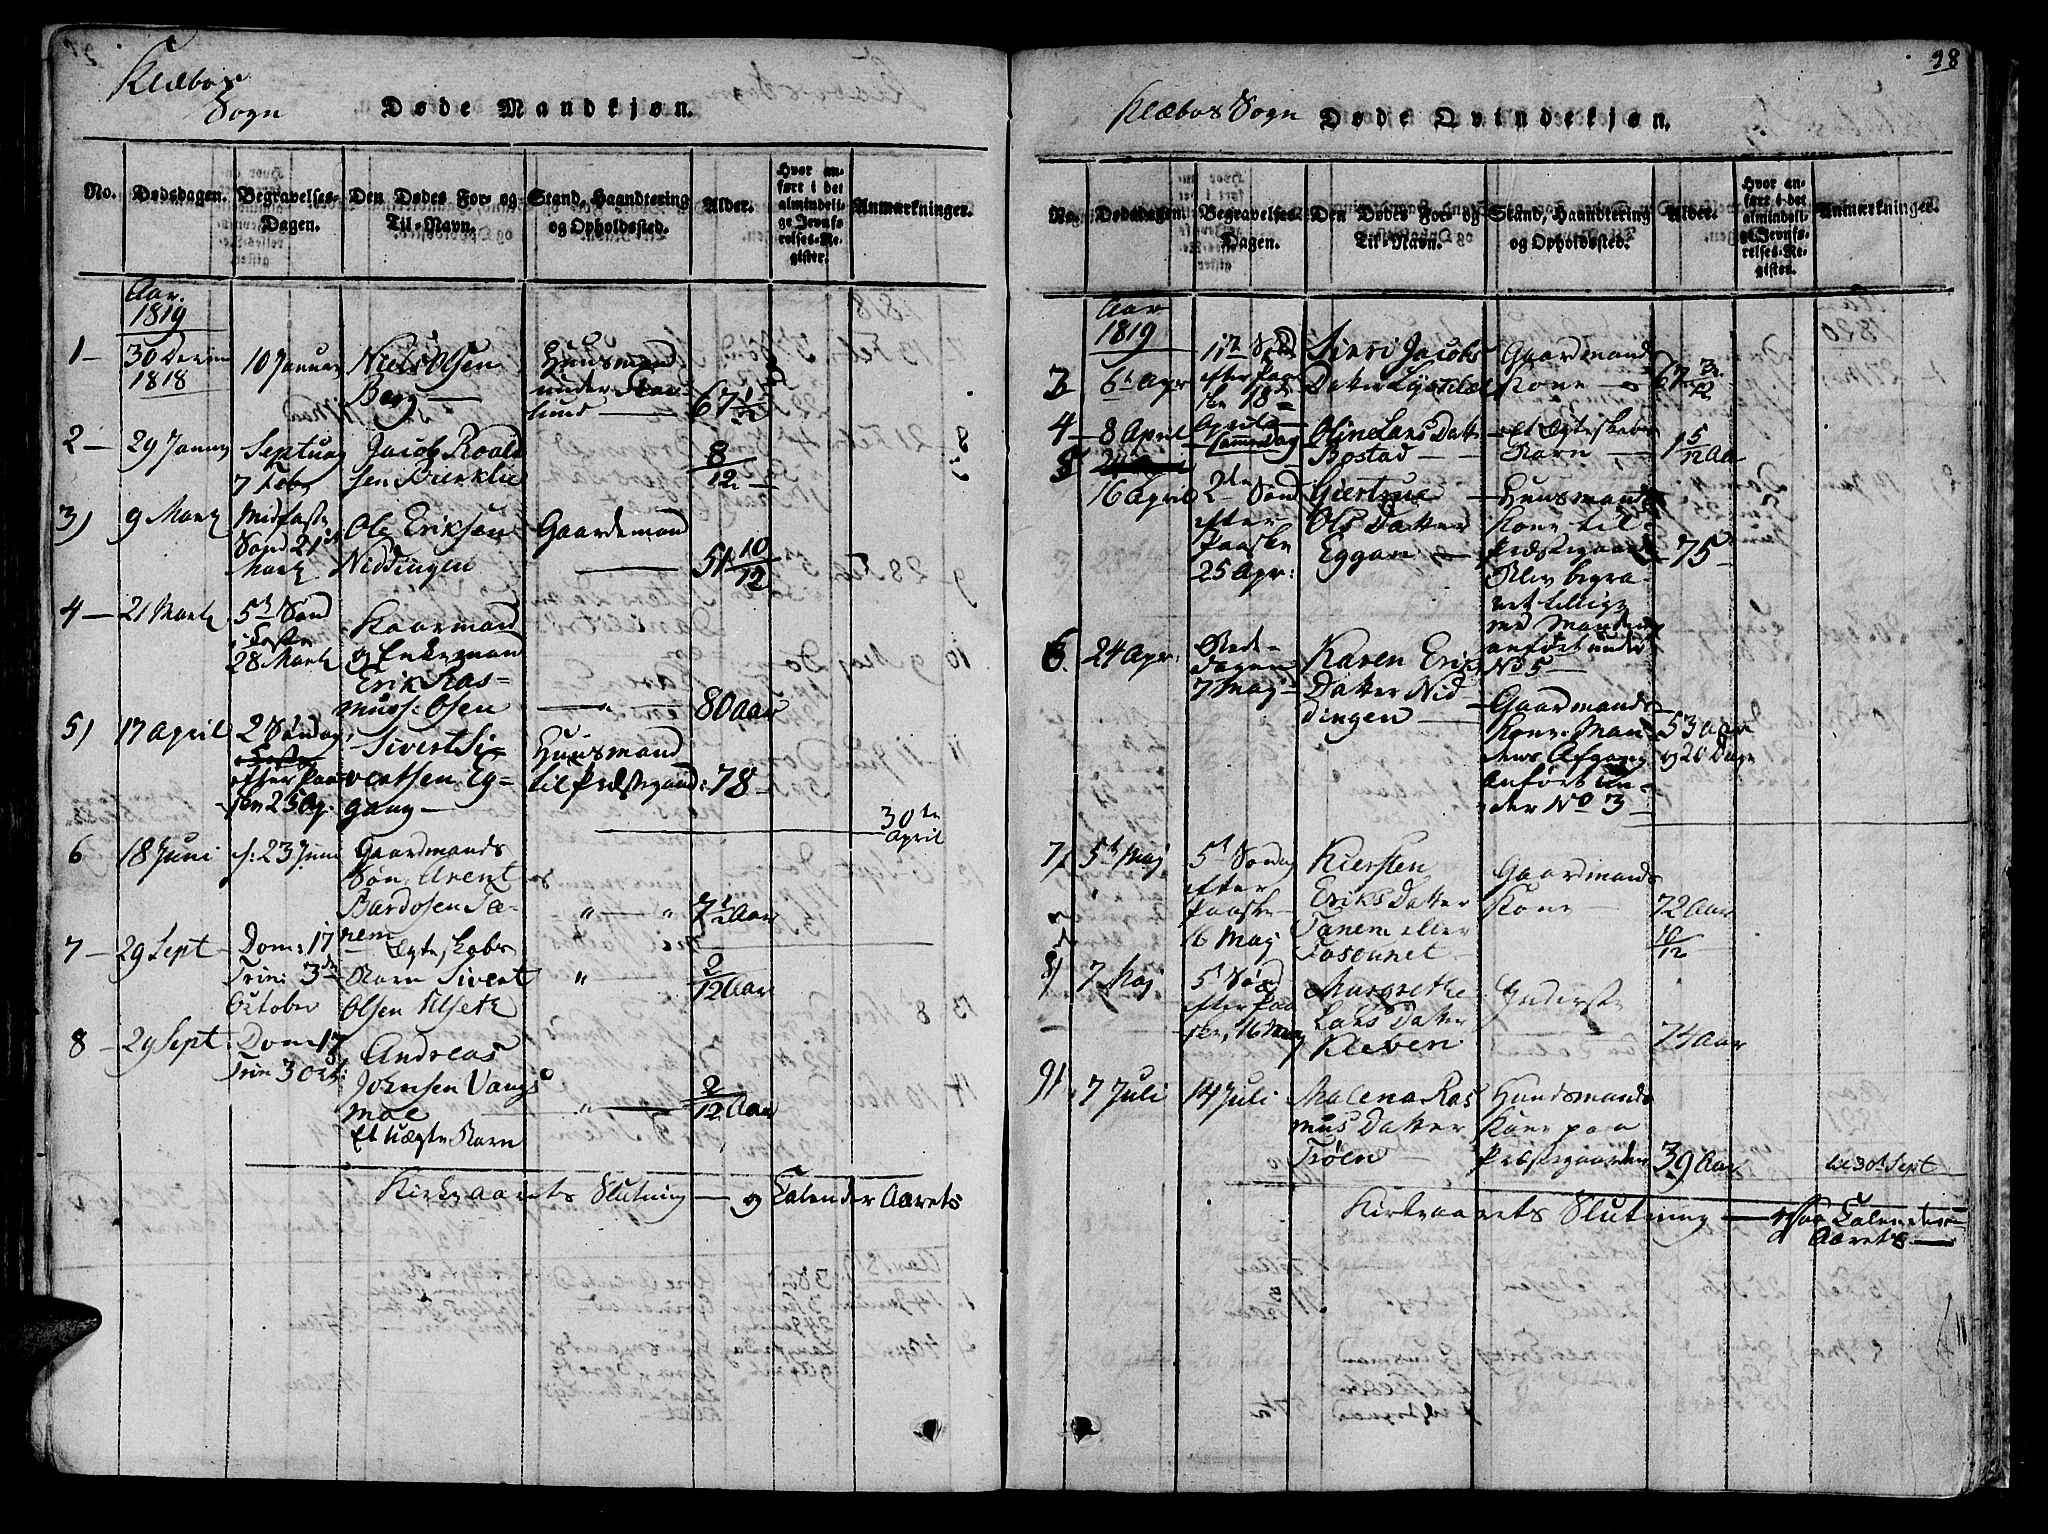 Klæboe
Sogn
Døde Mandkjøn.
No.
Dødsdagen.
Begravelses-
Dagen.
Den Dødes For- og
Til-Navn.
Stand, Haandtering
og Opholdssted.
Alder.
Hvor an-
ført i det
almindeli-
ge Jevnfø-
relses-Re-
gister.
Anmærkninger.
Aar.
1819
1 —
30 Decem
1818
10 Januar
Niels Olsen
Berg —
Huusmand
under
lund —
67 1/2
2 —
29 Januar
Septuag
7 Febr
Jacob Roald
sen Bierklie
8/12
3)
9 Martz
Midfaste
Sønd 21de
Martz
Ole Eriksen
Nidtingen
Gaardmand
51 10/12
4 —
21 Martz
5te Sønd
i Faste
28 Martz
Kaarmand
og Enkemand
Erik Ras-
muss: Olsen
— " —
80 Aar
5)
17 April
2 Søndag
efter Paa-
sken 25 Ap.
Sivert Si-
vertsen Eg-
gang —
Huusmand
til Præstegaard:
78 —
30te
April
6
18 Juni
f: 23 Juni
Gaardmands
Søn, Arent
Bardosen Ta-
nem
" — "
7 1/2 Aar
7 —
29 Sept —
Dom: 17
Trin: 3de
October
— Ægteskabs
Barn Sivert
Olsen Ulseth
" —
2/12 Aar
8 —
29 Sept.
Dom 17
Trin 3 Oct:
Andreas
Johnsen Vangs
moe
Et uægte Barn
" —
2/12 Aar
Kirkeaarets Slutning — og Calender Aarets
98
Klæboe Sogn
Døde Qvindekjøn.
No.
Dødsdagen.
Begravelses-
Dagen.
Den Dødes For- og
Til-Navn.
Stand, Haandtering
og Opholdssted.
Alder.
Hvor an-
ført i det
almindeli-
ge Jevnfø-
relses-Re-
gister.
Anmærkninger.
Aar
1819
3
6te Apr
1ste Sønd
efter Paa
sken 18de
April
Siiri Jacobs
Datter
Gaardmands
Kone —
67 3/12
4 —
8 April
samme dag
Oline Lars Datter
Bostad —
— et Ægteskabs
Barn —
1 5/12 Aar
5
16 April
2den Sønd
efter
Paaske
25 Apr:
Giertrue
Ols Datter
Eggan —
Huusmands
Kone til
Præstegaard
Blev begra-
vet tillige
med Manden
anført under
No 5 —
75
6.
24 Apr:
Bede-
dagen
7 Maj
Karen Eriks
Datter Nid
dingen —
Gaardmands
Kone. Man-
dens Afgang
anført un-
der No 3 —
53 Aar
og 20 Dage
7)
5te Maj
5te Søndag
efter
Paaske —
16 Maj
Kiersten
Eriks Datter
Tanem eller
Gaardmands
Kone —
72 Aar
10/12
8)
7 Maj
5te Sønd
efter Paa
sken, 16 Maj
Margrethe
Lars Datter
Kleven.
Inderste
74 Aar
9).
7 Juli
14 Juli
Malena Ras
mus Datter
Trøen —
Huusmands
Kone paa
Præstegaarden
39 Aar
til 30te Sept
Kirkeaarets Slutning — og Calender-
Aarets —